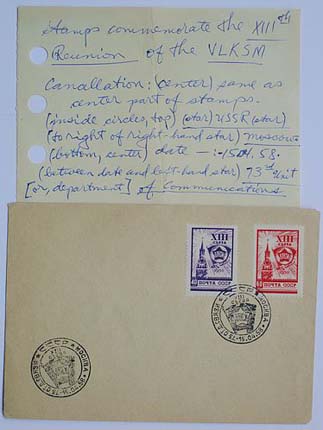 Stamps commemorate the XIIIth
Reunion of the VLKSM
Cancellation: (center) same as
center part of stamps.
(inside circles, top) (star) USSR (star)
(to right of right-hand star) Moscow
(bottom, center) date — :-15.4.58.
(between date and left-hand star) 73rd Unit
[or, department] of Communications
XIII
СЪЕЗД
ПОЧТА СССР
XIII
СЪЕЗД
ПОЧТА СССР
СССР
МОСКВА
СССР
МОСКВА